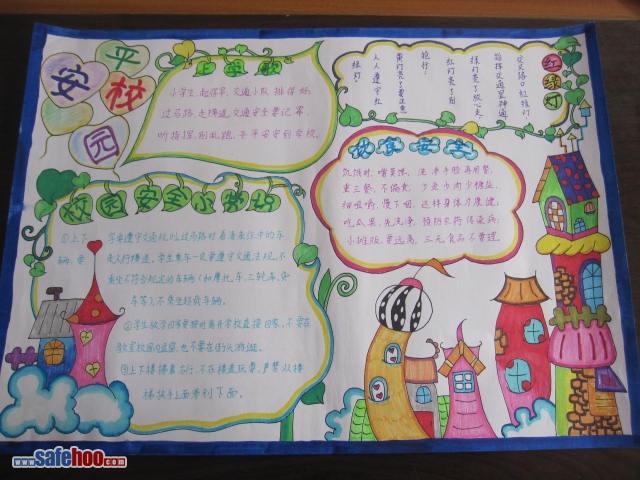 平安校园
上学歌
小学生,起得早,交通小队排伴好,
过马路,走横道,交通安全要记牢,
听指挥,别乱跑,平平安安到学校。
红绿灯
交叉路口红绿灯,
指挥交通显神通,
绿灯亮了放心走,
红灯亮了别
抢行,
黄灯亮了要注意,
人人遵守红
绿灯。
饮食安全
饥饿时,嘴莫馋,洗净手脸再用餐,
重三餐,不偏食,少吃肉少糖盐,
细咀嚼,慢下咽,这样身体才康健,
吃瓜果,先洗净,预防农药传染病,
小摊贩,要远离,三无食品不要理。
校园安全小常识
①上下学要遵守交通规则,过马路时看清来往中的车
辆,要走人行横道,学生乘车一定要遵守交通法规,不
乘坐不符合规定的车辆(如摩托车,三轮车,货
车等),不乘坐超载车辆。
②学生放学回家要按时离开学校直接回家,不要在
教室校园内逗留,也不要在街头游逛。
③上下楼梯靠右行,不在楼道玩耍,严禁从楼
梯扶手上面滑到下面。
www.safehoo.com